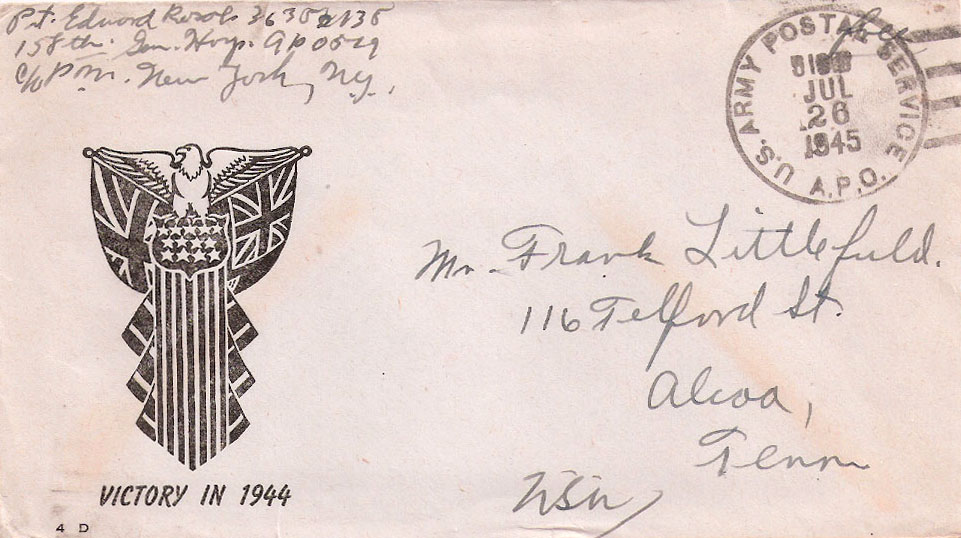 Pvt. Edward
158th. Gen. Hosp. APO 519
c/o P.M. New York, N.Y.,
Free
U.S. ARMY POSTAL SERVICE
JUL
26
1945
A.P.O.
Mr. Frank Littlefield.
116 Telford St.
Alcoa,
Tenn
USA
VICTORY IN 1944
4 D